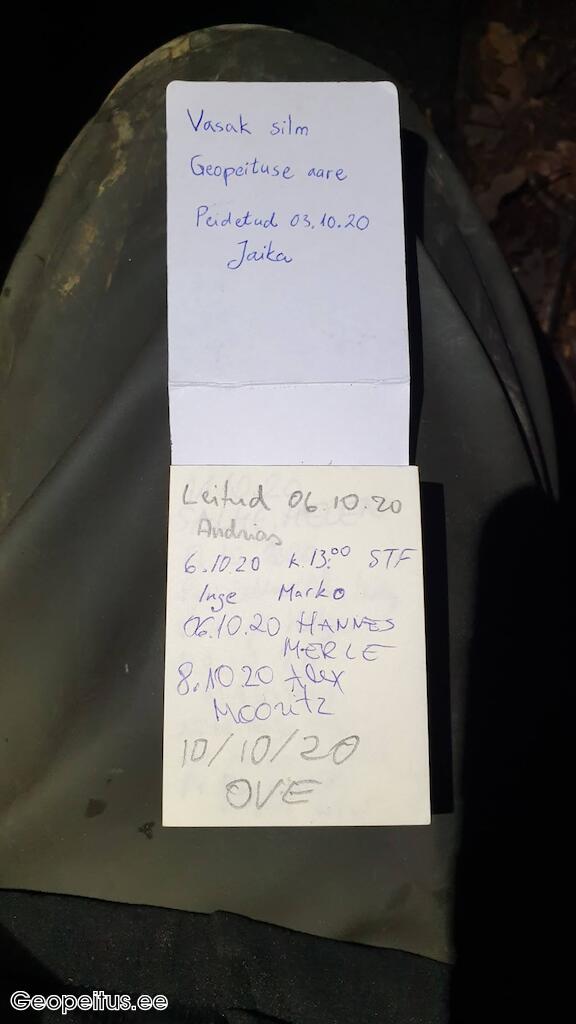 Vasak silm
Geopeituse aare
Peidetud 03.10.20
Jaika
Leitud 06.10.20
Andrias
6.10.20 k.13.00 STF
Inge Marko
06.10.20 HANNES
MERLE
8.10 20 Alex
Mooritz
10/10/20
OVE
Geopeitus.ee